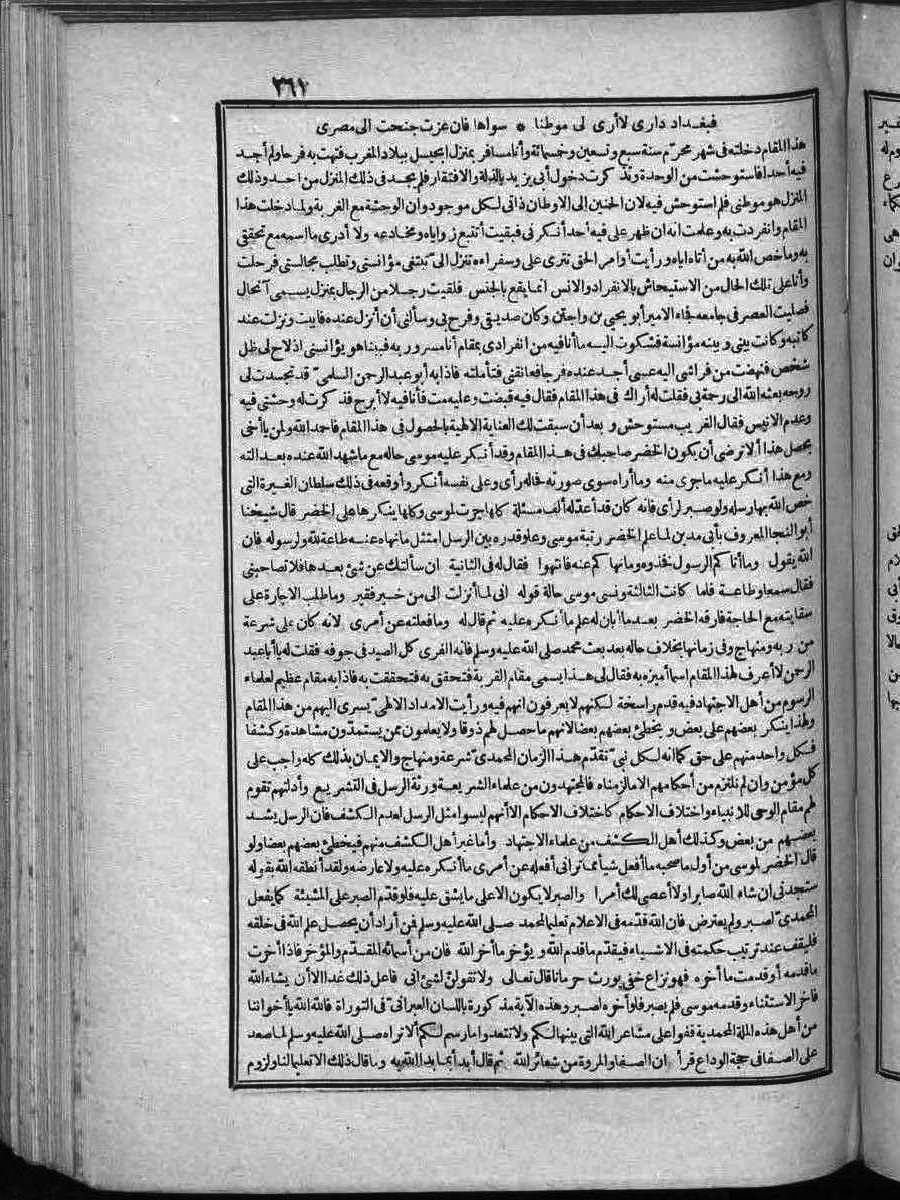 ٢٦١
فبغداد دارى لا أرى لى موطنا * سواها فان عزت جنحت الى مصرى
هذا المقام دخلته فى شهر محرم سنة سبع وتسعين وخمسمائة وأنا مسافر بمنزل ايجيسل ببلاد المغرب فتهت به فرحا ولم أجد
فيه أحدا فاستوحشت من الوحدة وتذكرت دخول أبى يزيد بالذلة والافتقار فلم يجد فى ذلك المنزل من أحد وذلك
المنزل هو موطنى فلم استوحش فيه لان الحنين الى الاوطان ذاتى لكل موجود وان الوحشة مع الغربة ولما دخلت هذا
المقام وانفردت به وعلمت انه ان ظهر على فيه أحد أنكرنى فبقيت أتتبع زواياه ومخادعه ولا أدرى ما اسمه مع تحققى
به وما خص الله به من أتاه اياه ورأيت أوامر الحق تترى على وسفراءه تنزل الىّ تبتغى مؤانستى وتطلب مجالستى فرحلت
وأنا على تلك الحال من الاستيحاش بالانفراد والانس انما يقع بالجنس فلقيت رجلا من الرجال بمنزل يسمى آنحال
فصليت العصر فى جامعه فجاء الامير أبو يحيى بن واجتن وكان صديقى وفرح بى وسألنى أن أنزل عنده فابيت ونزلت عند
كاتبه وكانت بينى وبينه مؤانسة فشكوت اليه ما أنا فيه من انفرادى بمقام أنا مسرور به فبينا هو يؤانسنى اذ لاح لى ظل
شخص فنهضت من فراشى اليه عسى أجد عنده فرجا فعانقنى فتأملته فاذا به أبو عبد الرحمن السلمى قد تجسدت لى
روحه بعثه الله الى رحمة بى فقلت له أراك فى هذا المقام فقال فيه قبضت وعليه مت فأنا فيه لا أبرح فذكرت له وحشتى فيه
وعدم الانيس فقال الغريب مستوحش وبعد أن سبقت لك العناية الالهية بالحصول فى هذا المقام فاحمد الله ولمن يا أخى
يحصل هذا ألا ترضى أن يكون الخضر صاحبك فى هذا المقام وقد أنكر عليه موسى حاله مع ما شهد الله عنده بعدالته
ومع هذا أنكر عليه ما جرى منه وما أراه سوى صورته فحاله رأى وعلى نفسه أنكر وأوقعه فى ذلك سلطان الغيرة التى
خص الله بها رسله ولو صبر لرأى فانه كان قد أعد له ألف مسئلة كلها جرت لموسى وكلها ينكرها على الخضر قال شيخنا
أبو النجا المعروف بأبى مدين لما علم الخضر رتبة موسى وعلو قدره بين الرسل امتثل ما نهاه عنه طاعة لله ولرسوله فان
الله يقول وما أتاكم الرسول فخذوه وما نهاكم عنه فانتهوا فقال له فى الثانية ان سألتك عن شئ بعدها فلا تصاحبنى
فقال سمعا وطاعة فلما كانت الثالثة ونسى موسى حالة قوله انى لما أنزلت الى من خير فقير وما طلب الاجارة على
سقايته مع الحاجة فارقه الخضر بعد ما أبان له علم ما أنكره عليه ثم قال له وما فعلته عن أمرى لانه كان على شرعة
من ربه ومنهاج وفى زمانها بخلاف حاله بعد بعث محمد صلى الله عليه وسلم فانه الفرى كل الصيد فى جوفه فقلت له يا أبا عبد
الرحمن لا أعرف لهذا المقام اسما أميزه به فقال لى هذا يسمى مقام القربة فتحقق به فتحققت به فاذا به مقام عظيم لعلماء
الرسوم من أهل الاجتهاد فيه قدم راسخة لكنهم لا يعرفون انهم فيه ورأيت الامداد الالهى يسرى اليهم من هذا المقام
ولهذا ينكر بعضهم على بعض ويخطئ بعضهم بعضا لانهم ما حصل لهم ذوقا ولا يعلمون ممن يستمدون مشاهدة وكشفا
فكل واحد منهم على حق كما انه لكل نبى تقدم هذا الزمان المحمدى شرعة ومنهاج والايمان بذلك كله واجب على
كل مؤمن وان لم نلتزم من أحكامهم الا ما لزمناه فالمجتهدون من علماء الشريعة ورثة الرسل فى التشريع وأدلتهم تقوم
لهم مقام الوحى للانبياء واختلاف الاحكام كاختلاف الاحكام الا أنهم ليسوا مثل الرسل لعدم الكشف فان الرسل يشد
بعضهم من بعض وكذلك أهل الكشف من علماء الاجتهاد وأما غير أهل الكشف منهم فيخطئ بعضهم بعضا ولو
قال الخضر لموسى من أول ما صحبه ما أفعل شيأ مما ترانى أفعله عن أمرى ما أنكره عليه ولا عارضه ولقد أنطقه الله بقوله
ستجدنى ان شاء الله صابرا ولا أعصى لك أمرا والصبر لا يكون الا على ما يشق عليه فلو قدم الصبر على المشيئة كما يفعل
المحمدى لصبر ولم يعترض فان الله قدمه فى الاعلام تعليما لمحمد صلى الله عليه وسلم فمن أراد أن يحصل علم الله فى خلقه
فليقف عند ترتيب حكمته فى الاشياء فيقدم ما قدم الله ويؤخر ما أخر الله فان من أسمائه المقدم والمؤخر فاذا أخرت
ما قدمه أو قدمت ما أخره فهو نزاع خفى يورث حرمانا قال تعالى ولا تقولن لشئ انى فاعل ذلك غدا الا أن يشاء الله
فاخر الاستثناء وقدمه موسى فلم يصبر فلو أخره لصبر وهذه الآية مذكورة باللسان العبرانى فى التوراة فالله الله يا اخواننا
من أهل هذه الملة المحمدية قفوا على مشاعر الله التى بينها لكم ولا تتعدوا ما رسم لكم ألا تراه صلى الله عليه وسلم لما صعد
على الصفا فى حجة الوداع قرأ ان الصفا والمروة من شعائر الله ثم قال أبدأ بما بدأ الله به وما قال ذلك الا تعليما لنا ولزوم